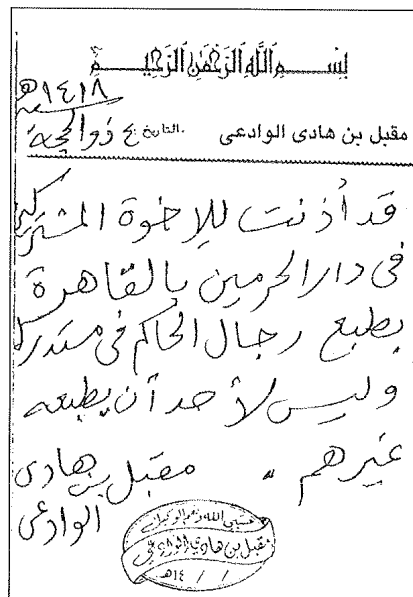 بسم الله الرحمن الرحيم
مقبل بن هادى الوادعى
التاريخ ٤ ذو الحجة
١٤١٨هـ
قد أذنت للإخوة المشتركين
فى دار الحرمين بالقاهرة
بطبع رجال الحاكم فى مستدركه
وليس لأحد أن يطبعه
غيرهم . مقبل بن هادى
الوادعى
حسبي الله ونعم الوكيل
مقبل بن هادي الوادعي
/ / ١٤هـ